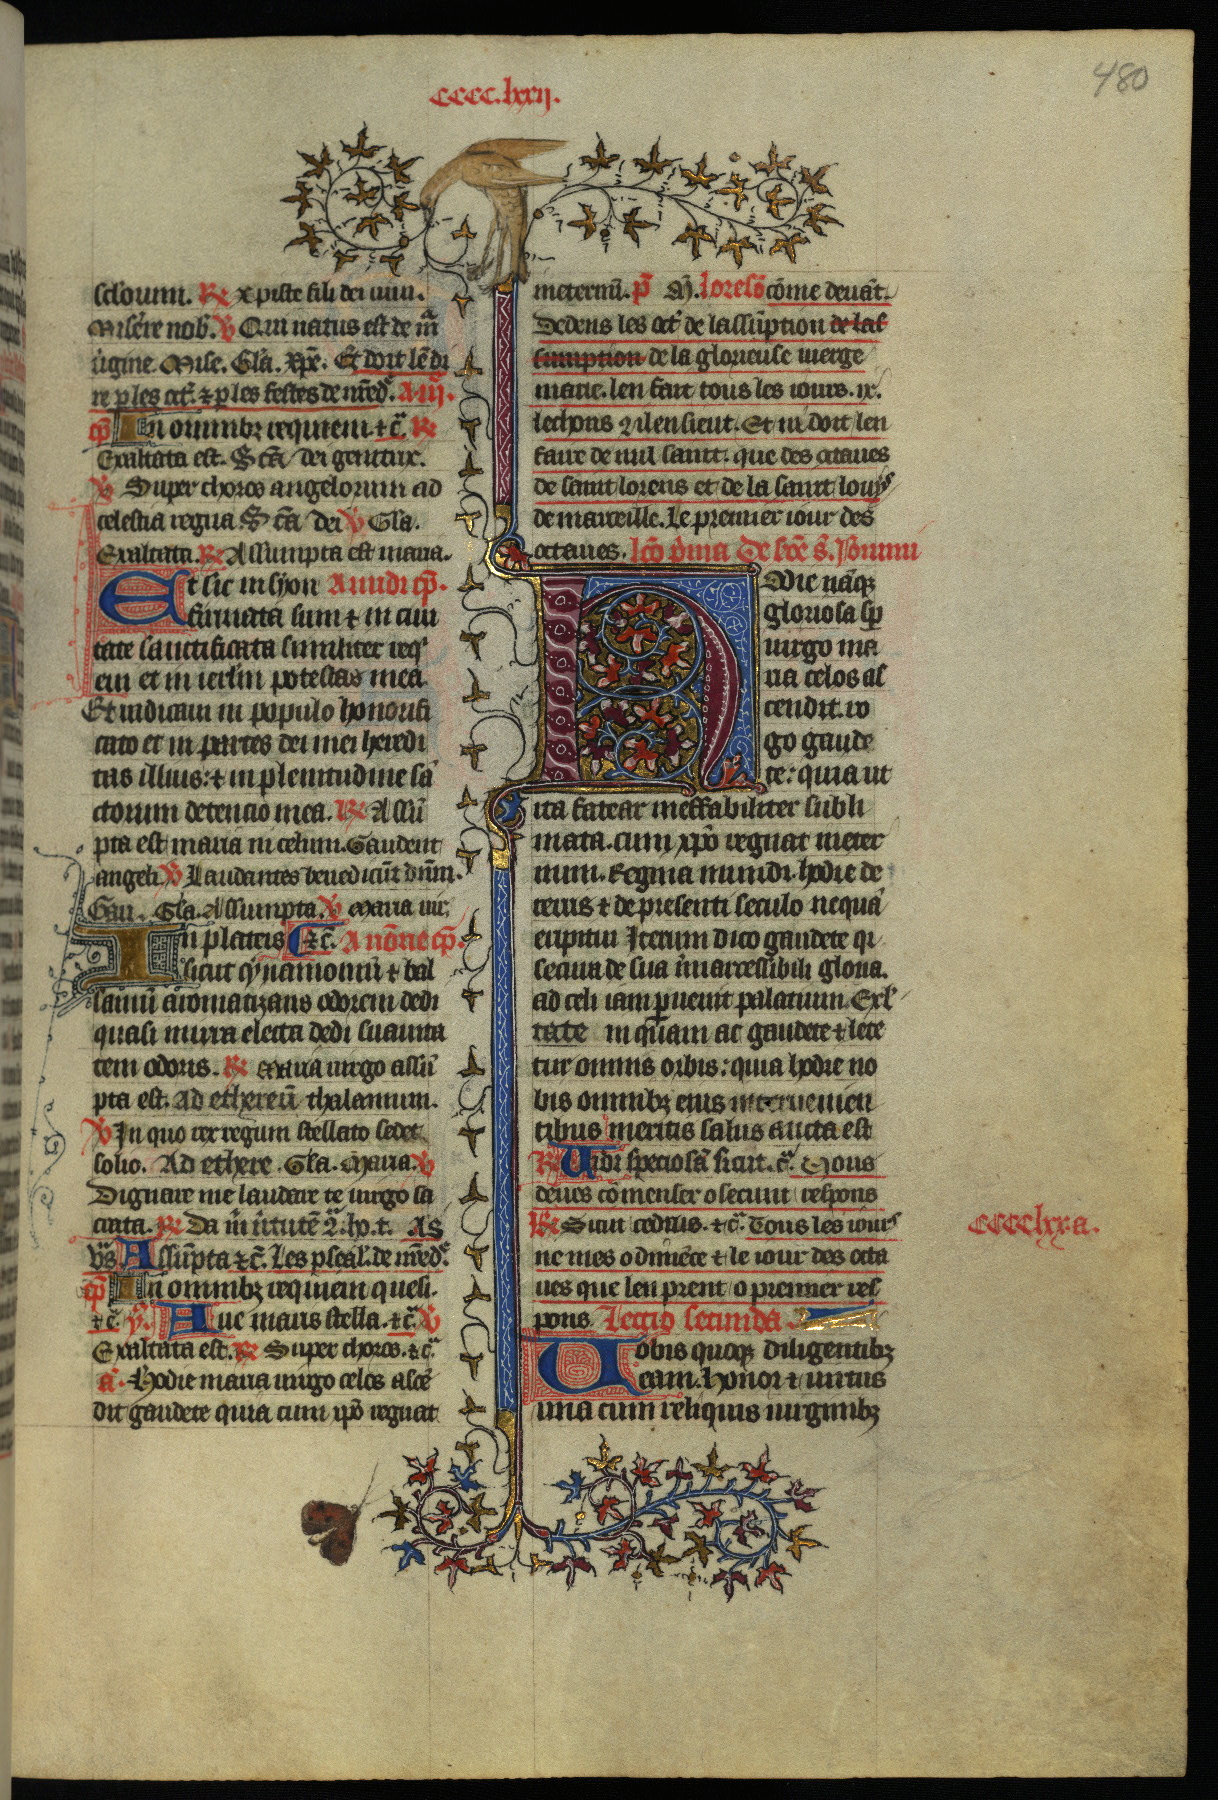 cccc.lxxij.
480
sclorum. R xpiste fili dei uiui.
Miserere nob'. V Qui natus est de m
uirgine. Mise. Gla. Xpe. Et doit len di
re p les oct'. & p les festes de nred'. A iij.
cp In omnibz requiem. &c. R
Exaltata est. Sca dei genitrix.
V Super choros angelorum ad
celestia regna Sca dei V Gla.
Exaltata. R Assumpta est maria.
Et sic in syon A midi cp.
firmata sum & in ciui
tate sanctificata similiter req
eui et in ierlm potestas mea
Et radicaui in populo honorifi
cato et in partes dei mei heredi
tas illius: & in plenitudine sa
ctorum detencio mea. R Assu
pta est maria in celum. Gaudent
angeli V Laudantes benedicut dnm.
Gau. Gla. Assumpta. V Maria uir
In plateis &c. A nonne cp.
sicut cynamomu & bal
samu aromatizans odorem dedi
quasi mirra electa dedi suauita
tem odoris. R Maria uirgo assu
pta est. Ad ethereu thalamum.
V In quo rex regum stellato sedet
solio. Ad ethere. Gla. Maria. V
Dignare me laudare te uirgo sa
crata. R Da m uirtute 2. ho. t. As
vs Assupta &c. Les pseal'. de nred'.
cp In omnibz requiem quesi.
&c. y. Aue maris stella. &c. V
Exaltata est. R Super choros. &c.
a. Hodie maria uirgo celos asce
dit gaudete quia cum xpo regnat
ineternu. p M. loreso come deuat.
Dedens les oct' de lassuption de las
sumption de la glorieuse uierge
marie. len fait tous les iours. ix.
lechons 2 len sieut. Et ni doit len
faire de nul saint. que des octaues
de saint lorens et de la saint louys
de marceille. Le premier iour des
octaues. lco pma De
Adie naqz
gloriosa sp
uirgo ma
ria celos as
cendit. ro
go gaude
te: quia ut
ita fatear ineffabiliter subli
mata. cum xpo regnat ineter
num. Regina mundi. hodie de
terris & de presenti seculo nequa
eripitur Iterum dico gaudete qr
secura de sua inmarcessibili gloria.
ad celi iam peruenit palatium Exl
tate inquam ac gaudete & lete
tur omnis orbis: quia hodie no
bis omnibz eius interuenien
tibus meritis salus aucta est
R Vidi speciosa sicut. &c. Nous
deues comenser o secunt respons
R Sicut cedrus. &c. Tous les iours
ne mes o dimece & le iour des octa
ues que len prent o premier res
pons Lectio secunda.
Vobis quoqz diligentibz
eam. honor & uirtus
una cum reliquis uirginibz
cccclxx.a.